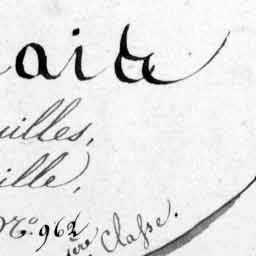 aite
uilles,
ille,
N.º 962
ère Classe.